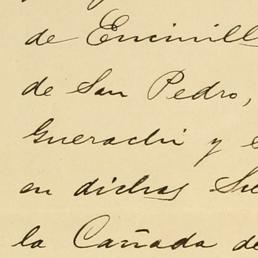 de Encinill
de San Pedro,
Guerachi y
en dichas
la Cañada de